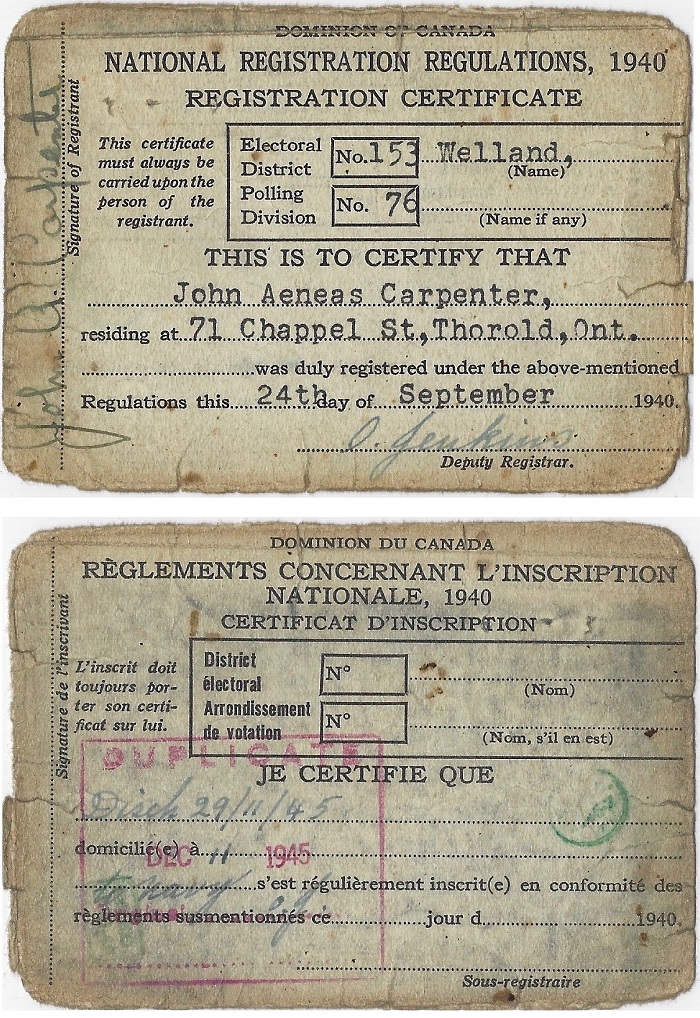 DOMINION OF CANADA
NATIONAL REGISTRATION REGULATIONS, 1940
REGISTRATION CERTIFICATE
Signature of Registrant
John A. Carpenter
This certificate
must always be
carried upon the
person of the
registrant.
Electoral District No. 153 Welland,
(Name)
Polling Division No. 76
(Name if any)
THIS IS TO CERTIFY THAT
John Aeneas Carpenter,
residing at 71 Chappel St., Thorold, Ont.
was duly registered under the above-mentioned
Regulations this 24th day of September 1940.
O. Jenkins
Deputy Registrar.
DOMINION DU CANADA
RÈGLEMENTS CONCERNANT L'INSCRIPTION
NATIONALE, 1940
CERTIFICAT D'INSCRIPTION
Signature de l'inscrivant
L'inscrit doit
toujours por-
ter son certi-
ficat sur lui.
District électoral N°
(Nom)
Arrondissement de votation N°
(Nom, s'il en est)
DUPLICATE
JE CERTIFIE QUE
Disch 29/11/45
domicilié(e) à
DEC 11 1945
s'est régulièrement inscrit(e) en conformité des
règlements susmentionnés ce jour d 1940.
Sous-registraire